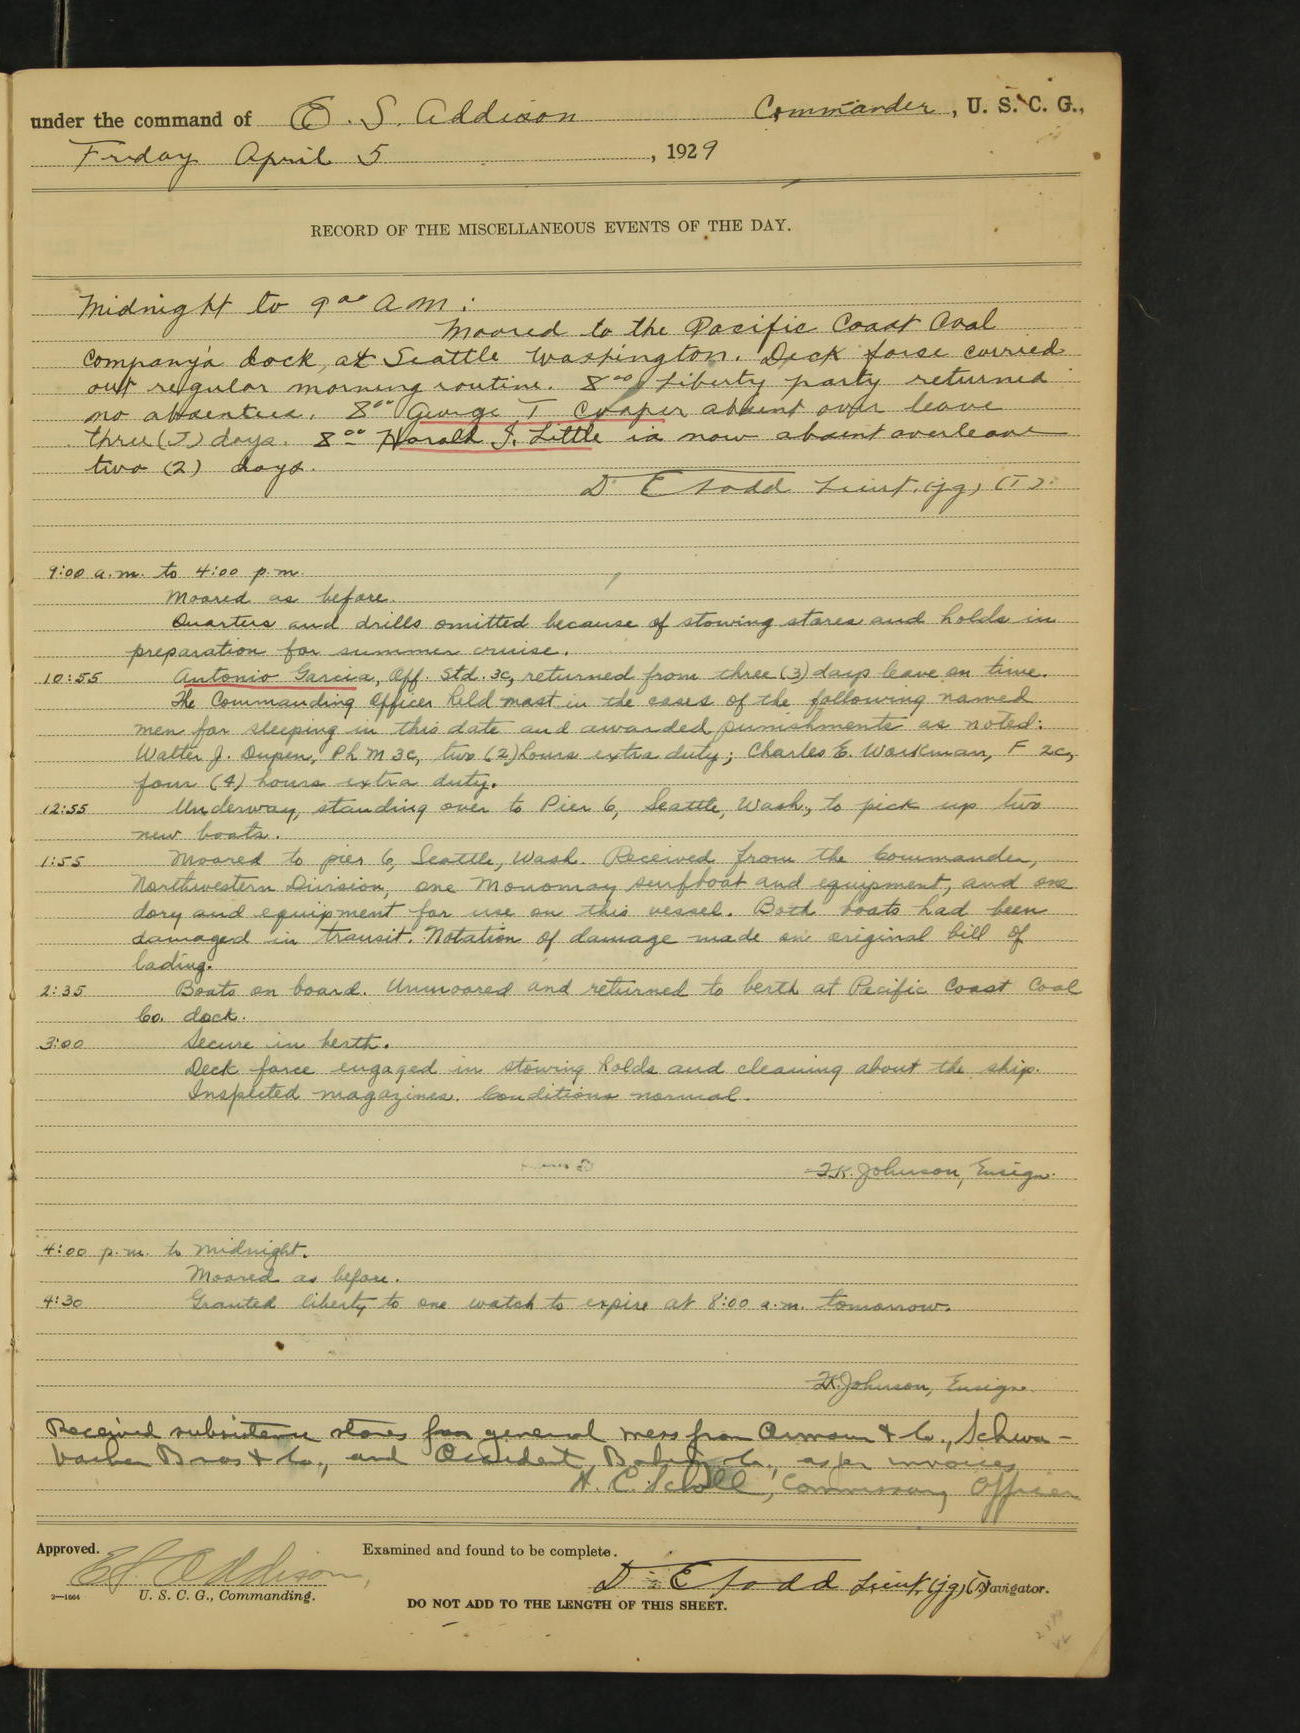 under the command of E. S. Addison Commander, U. S. C. G.,
Friday April 5, 1929
RECORD OF THE MISCELLANEOUS EVENTS OF THE DAY.
Midnight to 9 00 a m :
Moored to the Pacific Coast Coal
Company's dock, at Seattle Washington. Deck force carried
out regular morning routine. 8 00 Liberty party returned
no absentees. 8 00 George T Cooper absent over leave
three (3) days. 8 00 Harold J. Little is now absent overleave
two (2) days.
D E Todd Lieut. (jg) (T).
9:00 a.m. to 4:00 p.m.
Moored as before.
Quarters and drills omitted because of stowing stores and holds in
preparation for summer cruise.
10:55 Antonio Garcia, Off. Std. 3c, returned from three (3) days leave on time.
The Commanding Officer held mast in the cases of the following named
men for sleeping in this date and awarded punishments as noted:
Walter J. Dupen, Ph M 3c, two (2) hours extra duty; Charles E. Workman, F 2c,
four (4) hours extra duty.
12:55 Underway, standing over to Pier 6, Seattle, Wash., to pick up two
new boats.
1:55 Moored to pier 6, Seattle, Wash. Received from the Commander,
Northwestern Division, one Monomoy surfboat and equipment, and one
dory and equipment for use on this vessel. Both boats had been
damaged in transit. Notation of damage made on original bill of
lading.
2:35 Boats on board. Unmoored and returned to berth at Pacific Coast Coal
Co. dock.
3:00 Secure in berth.
Deck force engaged in stowing holds and cleaning about the ship.
Inspected magazines. Conditions normal.
F.K. Johnson, Ensign.
4:00 p.m. to midnight.
Moored as before.
4:30 Granted liberty to one watch to expire at 8:00 a.m. tomorrow.
F.K. Johnson, Ensign.
Received subsistence stores for general mess from Armour & Co., Schwa-
bacher Bros & Co., and Occident Co., as per invoices
H. C. Scholl, Commissary Officer
Approved. Examined and found to be complete.
E S Addison,
D. E Todd Lieut. (jg) (T) Navigator.
2—1664 U. S. C. G., Commanding.
DO NOT ADD TO THE LENGTH OF THIS SHEET.